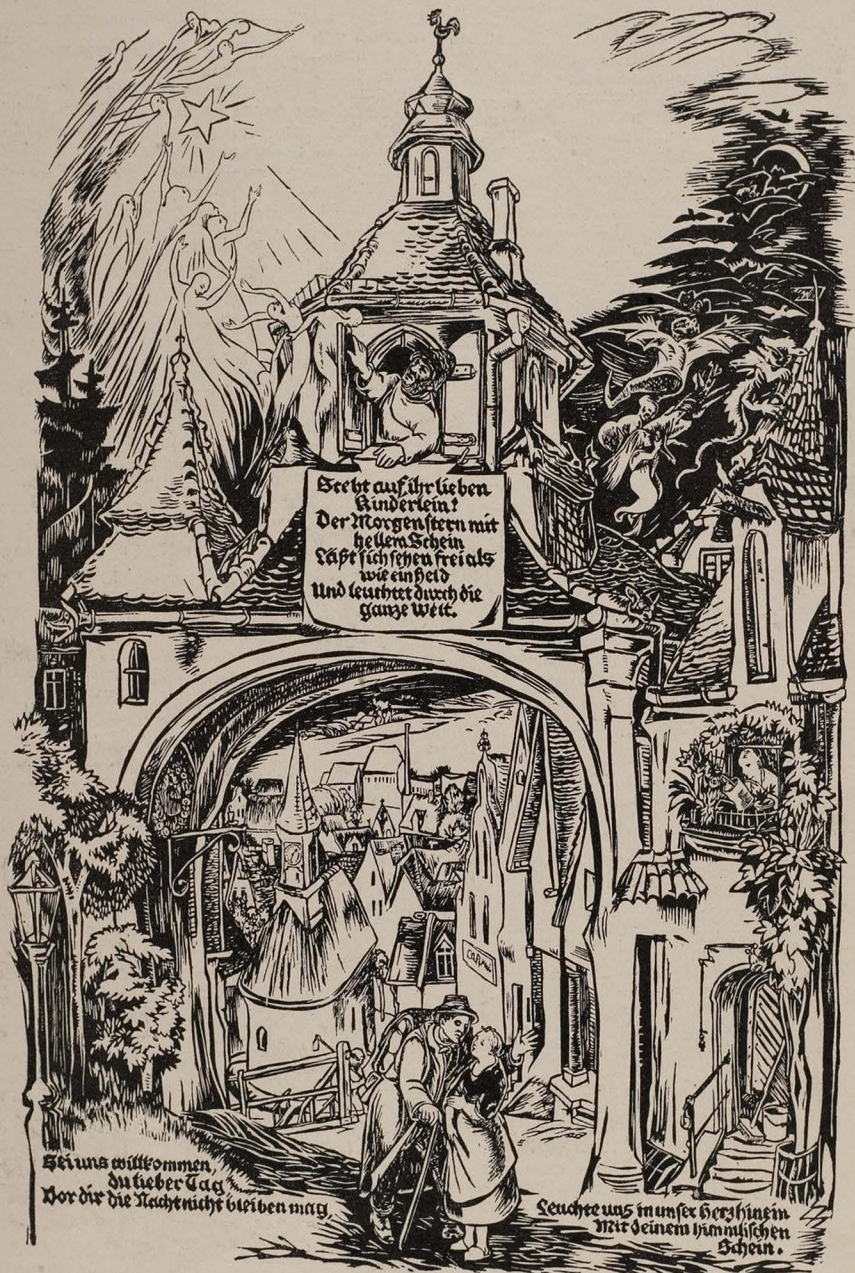 Steht auf, ihr lieben
Kinderlein!
Der Morgenstern mit
hellem Schein
Läßt sich sehen frei als
wie ein Held
Und leuchtet durch die
ganze Welt.
Sei uns willkommen,
du lieber Tag
Vor dir die Nacht nicht bleiben mag,
Leuchte uns in unser Herz hinein
Mit deinem himmlischen
Schein.